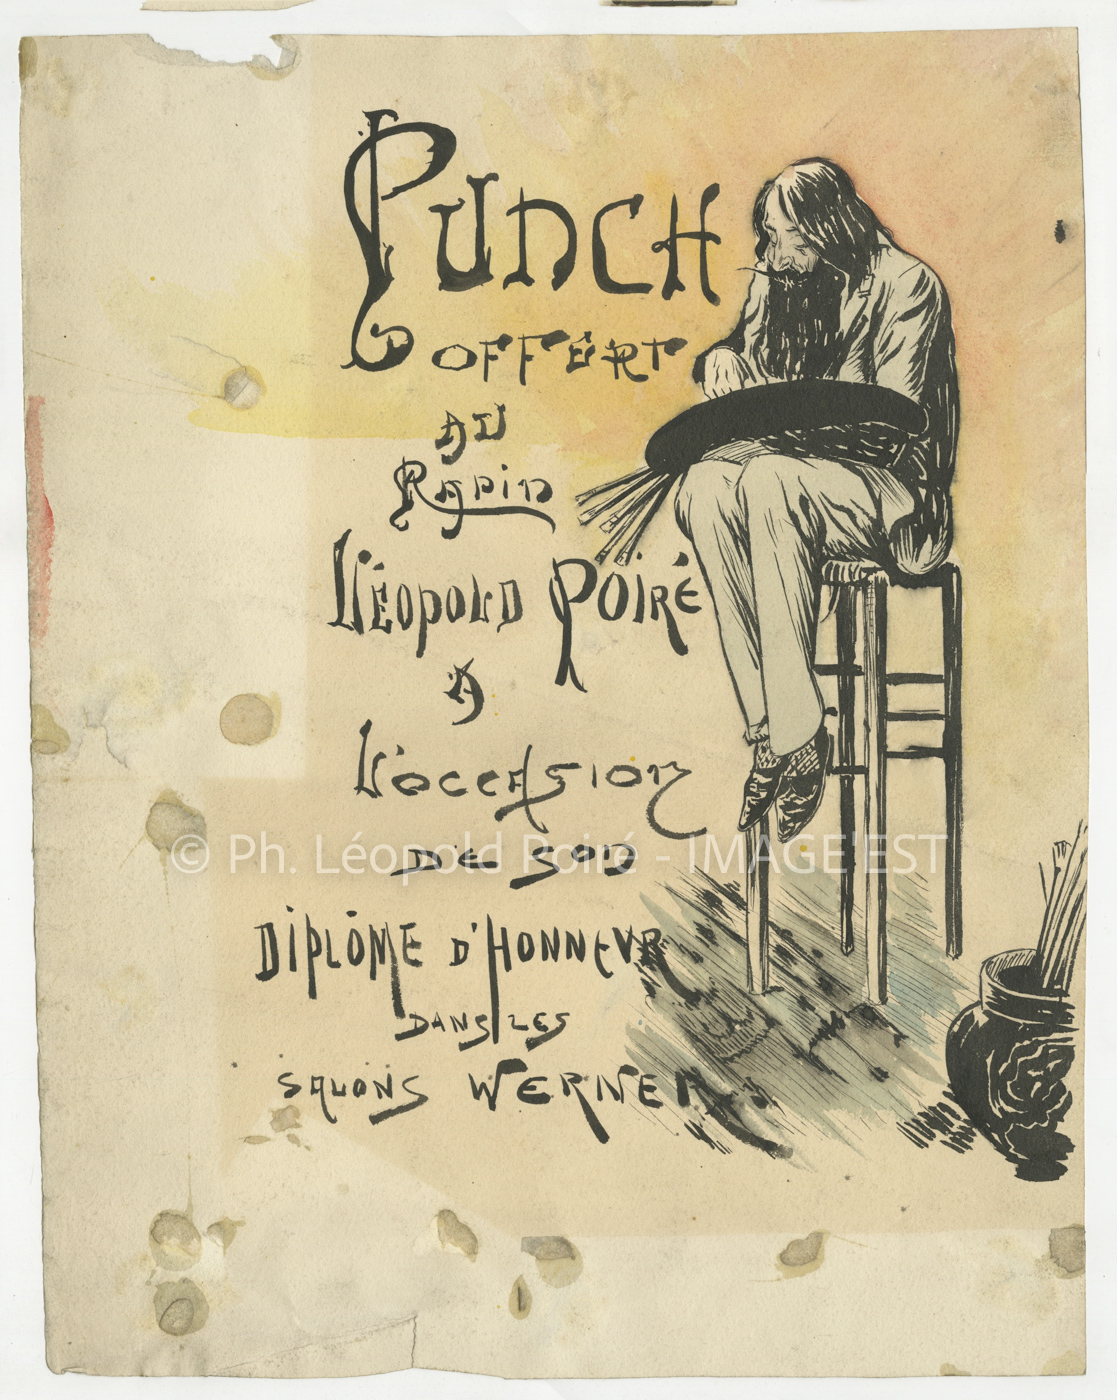 Punch
offert
au
Rapin
Léopold Poiré
à
l'occasion
de son
Diplôme d'Honneur
dans les
salons Werner
© Ph. Léopold Poiré - IMAGE'EST